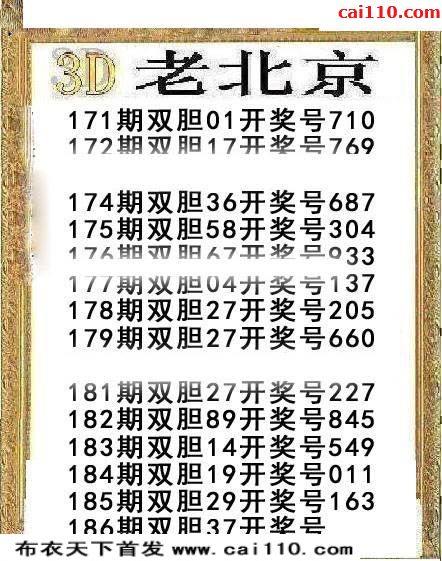 cai110.com
3D 老北京
171期双胆01开奖号710
172期双胆17开奖号769
174期双胆36开奖号687
175期双胆58开奖号304
176期双胆67开奖号933
177期双胆04开奖号137
178期双胆27开奖号205
179期双胆27开奖号660
181期双胆27开奖号227
182期双胆89开奖号845
183期双胆14开奖号549
184期双胆19开奖号011
185期双胆29开奖号163
186期双胆37开奖号
布衣天下首发 www.cai110.com